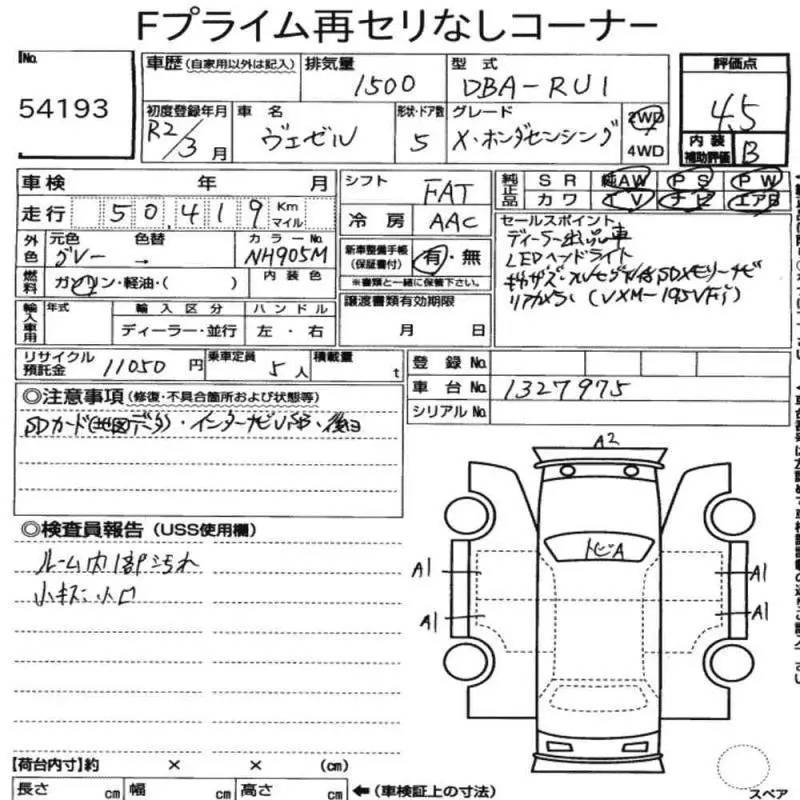 Fプライム再セリなしコーナー
No.
54193
車歴(自家用以外は記入)
排気量
1500
型式
DBA-RU1
評価点
4.5
初度登録年月
R2/3月
車名
ヴェゼル
形状・ドア数
5
グレード
X・ホンダセンシング
2WD
4WD
内装
補助評価
B
車検 年 月
シフト
FAT
純正品
SR 純AW PS PW
カワ TV ナビ エアB
走行
50,419
Km
マイル
冷房
AAC
セールスポイント
ディーラー出品車
LEDヘッドライト
リアカメラ(VXM-195VFi)
外色
元色
グレー
色替
→
カラーNo.
NH905M
新車整備手帳
(保証書付)
有・無
※書類と一緒に保管下さい。
燃料
ガソリン・軽油・( )
内装色
輸入車用
年式
輸入区分
ハンドル
ディーラー・並行
左・右
譲渡書類有効期限
月 日
リサイクル
預託金
11050円
乗車定員
5人
積載量
t
登録No.
車台No.
1327975
シリアルNo.
◎注意事項(修復・不具合箇所および状態等)
SDカード(地図データ)・インターナビUSB・後日
◎検査員報告(USS使用欄)
ルーム内1部汚れ
小キズ小凹
A2
トビA
A1
A1
A1
A1
【荷台内寸】約 × × (cm)
長さ cm 幅 cm 高さ cm ←(車検証上の寸法)
スペア